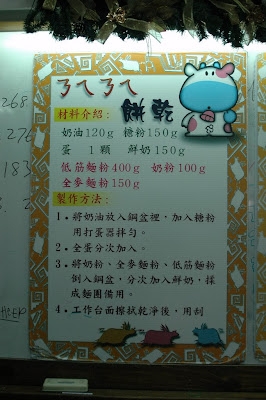 ㄋㄟㄋㄟ
餅乾
材料介紹：
奶油120g 糖粉150g
蛋 1顆 鮮奶150g
低筋麵粉400g 奶粉100g
全麥麵粉150g
製作方法：
1．將奶油放入鋼盆裡，加入糖粉
用打蛋器拌勻。
2．全蛋分次加入。
3．將奶粉、全麥麵粉、低筋麵粉
倒入鋼盆，分次加入鮮奶，揉
成麵團備用。
4．工作台面擦拭乾淨後，用刮
268
276
183